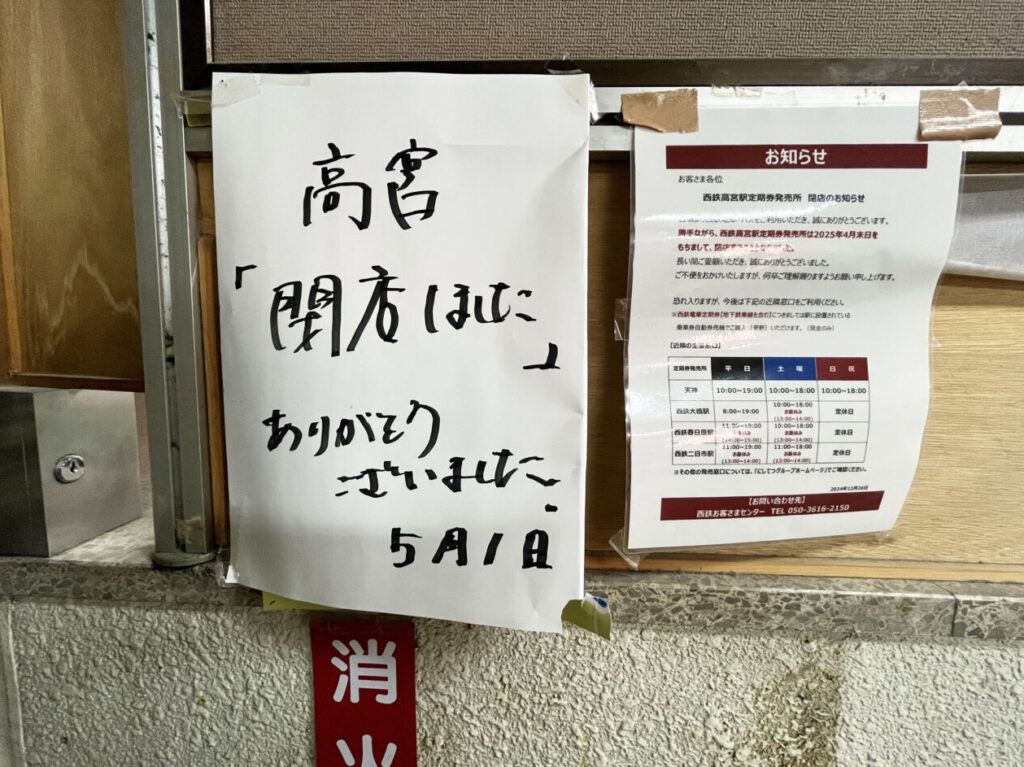 高宮
「閉店しました」
ありがとう
ございました。
5月1日
お知らせ
お客さま各位
西鉄高宮駅定期券発売所 閉店のお知らせ
ご利用いただき、誠にありがとうございます。
勝手ながら、西鉄高宮駅定期券発売所は2025年4月末日を
もちまして、閉店することとなりました。
長い間ご愛顧いただき、誠にありがとうございました。
ご不便をおかけいたしますが、何卒ご理解賜りますようお願い申し上げます。
恐れ入りますが、今後は下記の近隣窓口をご利用ください。
※西鉄電車定期券【地下鉄乗継を含む】につきましては駅に設置されている
乗車券自動券売機でご購入(帯新)いただけます。(現金のみ)
定期券発売所 平日 土曜 日祝
天神 10:00~19:00 10:00~18:00 10:00~18:00
西鉄大橋駅 8:00~19:00 10:00~18:00 お昼休み (13:00~14:00) 定休日
西鉄春日原駅 11:00~19:00 お昼休み (14:00~15:00) 10:00~18:00 お昼休み (13:00~14:00) 定休日
西鉄二日市駅 11:00~19:00 お昼休み (13:00~14:00) 10:00~18:00 お昼休み (13:00~14:00) 定休日
※その他の発売窓口については、「にしてつグループホームページ」でご確認ください。
2024年12月26日
【お問い合わせ先】
西鉄お客さまセンター TEL 050-3616-2150
消
火